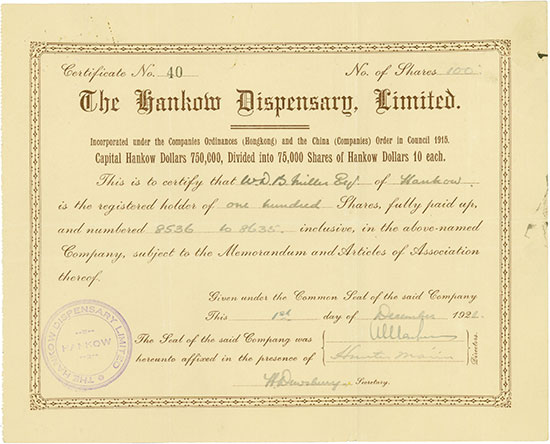 Certificate No. 40 No. of Shares 100
The Hankow Dispensary, Limited.
Incorporated under the Companies Ordinances (Hongkong) and the China (Companies) Order in Council 1915.
Capital Hankow Dollars 750,000, Divided into 75,000 Shares of Hankow Dollars 10 each.
This is to certify that W. D. B. Miller Esq. of Hankow
is the registered holder of one hundred Shares, fully paid up,
and numbered 8536 to 8635 inclusive, in the above-named
Company, subject to the Memorandum and Articles of Association
thereof.
Given under the Common Seal of the said Company
This 1st day of December 192
The Seal of the said Company was
hereunto affixed in the presence of
Directors.
H Dewsbury Secretary.
THE HANKOW DISPENSARY LIMITED
HANKOW